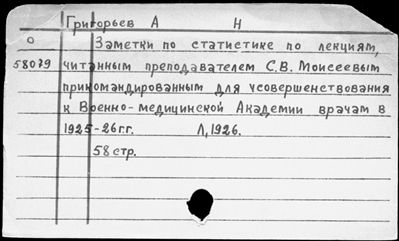 Григорьев А Н
О Заметки по статистике по лекциям,
58079 читанным преподавателем С.В. Моисеевым
прикомандированным для усовершенствования
к Военно-медицинской Академии врачам в
1925-26гг. Л, 1926.
58 стр.